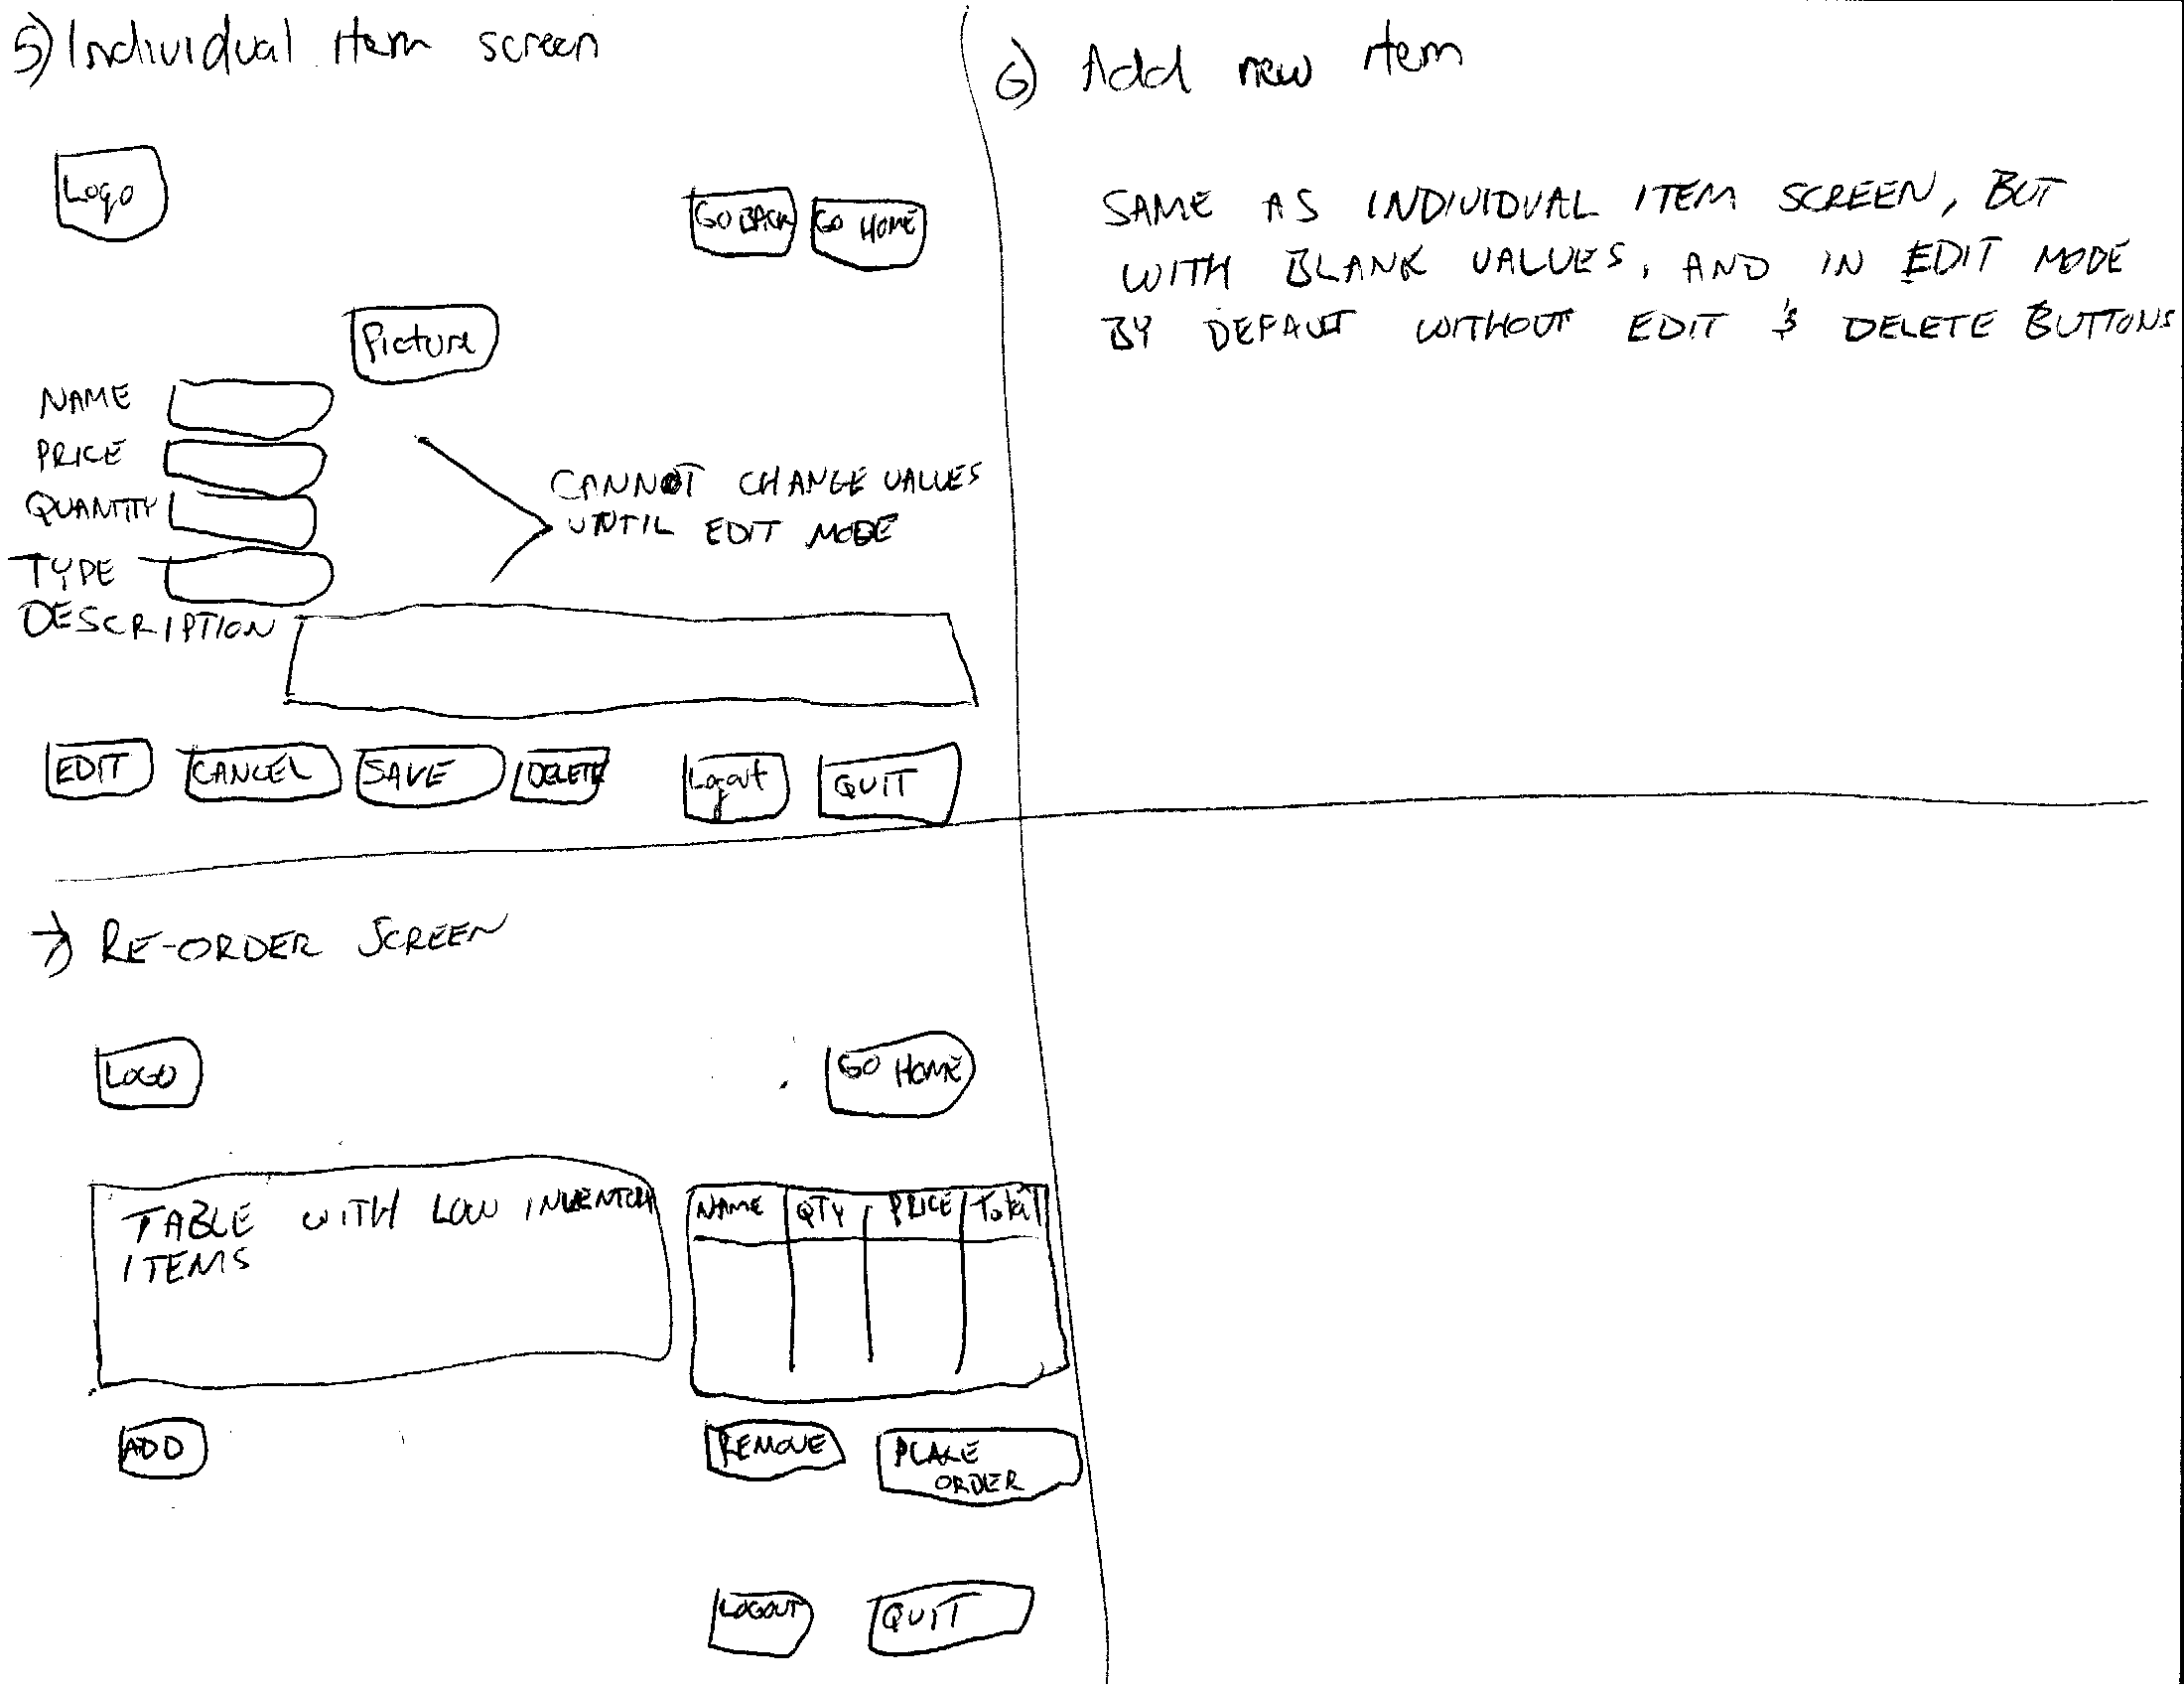 5) Individual item screen
Logo
GO BACK GO HOME
Picture
NAME
PRICE
QUANTITY
TYPE
CANNOT CHANGE VALUES
UNTIL EDIT MODE
DESCRIPTION
EDIT CANCEL SAVE DELETE Logout QUIT
6) Add new item
SAME AS INDIVIDUAL ITEM SCREEN, BUT
WITH BLANK VALUES, AND IN EDIT MODE
BY DEFAULT WITHOUT EDIT & DELETE BUTTONS
7) RE-ORDER SCREEN
LOGO GO HOME
TABLE WITH LOW INVENTORY
ITEMS
NAME QTY PRICE Total
ADD REMOVE PLACE
ORDER
LOGOUT QUIT